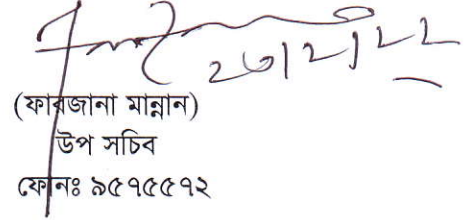 ২৩/২/২২
(ফারজানা মান্নান)
উপ সচিব
ফোনঃ ৯৫৭৫৫৭২